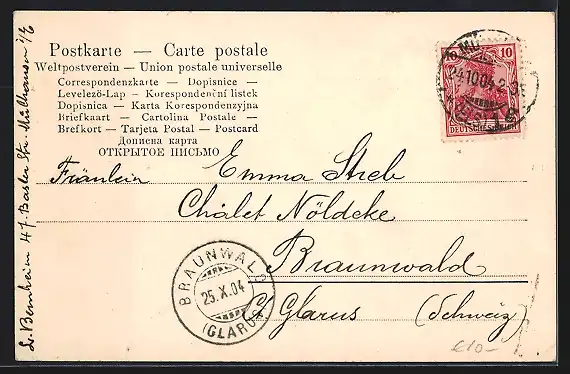 Postkarte — Carte postale
Weltpostverein — Union postale universelle
Correspondenzkarte — Dopisnice —
Levelező-Lap — Korespondenční lístek
Dopisnica — Karta Korespondenzyjna
Briefkaart — Cartolina Postale —
Brefkort — Tarjeta Postal — Postcard
Дописна карта
ОТКРЫТОЕ ПИСЬМО
10 10
24.10.04
DEUTSCHES REICH
Fräulein Emma Streb
Châlet Nöldeke
Braunwald
Ct. Glarus (Schweiz)
BRAUNWALD
25.X.04
(GLARUS)
L. Bernheim 47. Basler Str. Mülhausen i/E
€10-